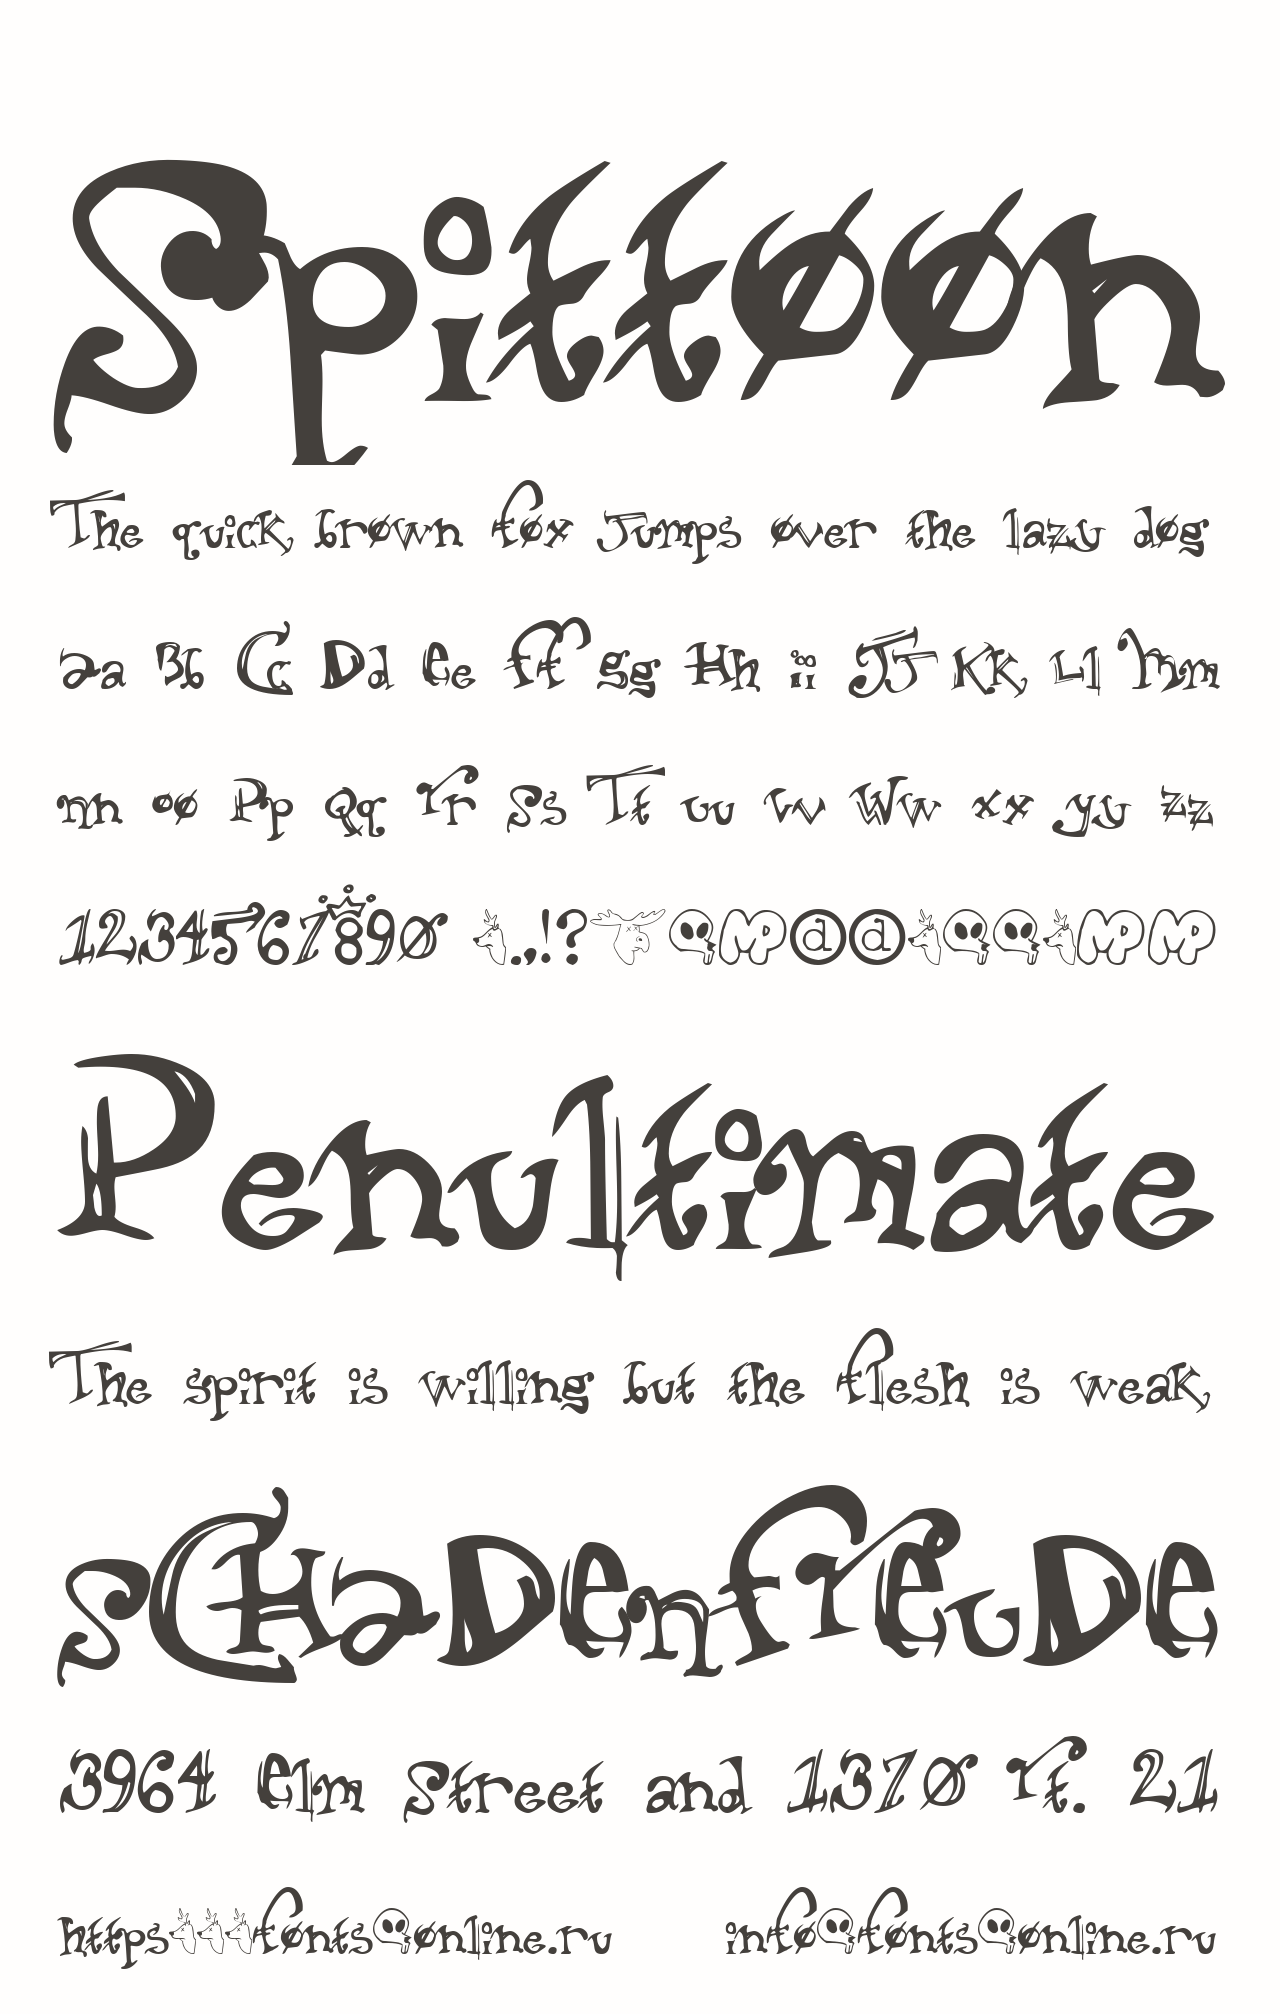 Spittoon
The quick brown fox jumps over the lazy dog
Aa Bb Cc Dd Ee Ff Gg Hh Ii Jj Kk Ll Mm
Nn Oo Pp Qq Rr Ss Tt Uu Vv Ww Xx Yy Zz
1234567890 .,!?
Penultimate
The spirit is willing but the flesh is weak
SCHADENFREUDE
3964 Elm Street and 1370 Rt. 21
https fonts online.ru info fonts online.ru